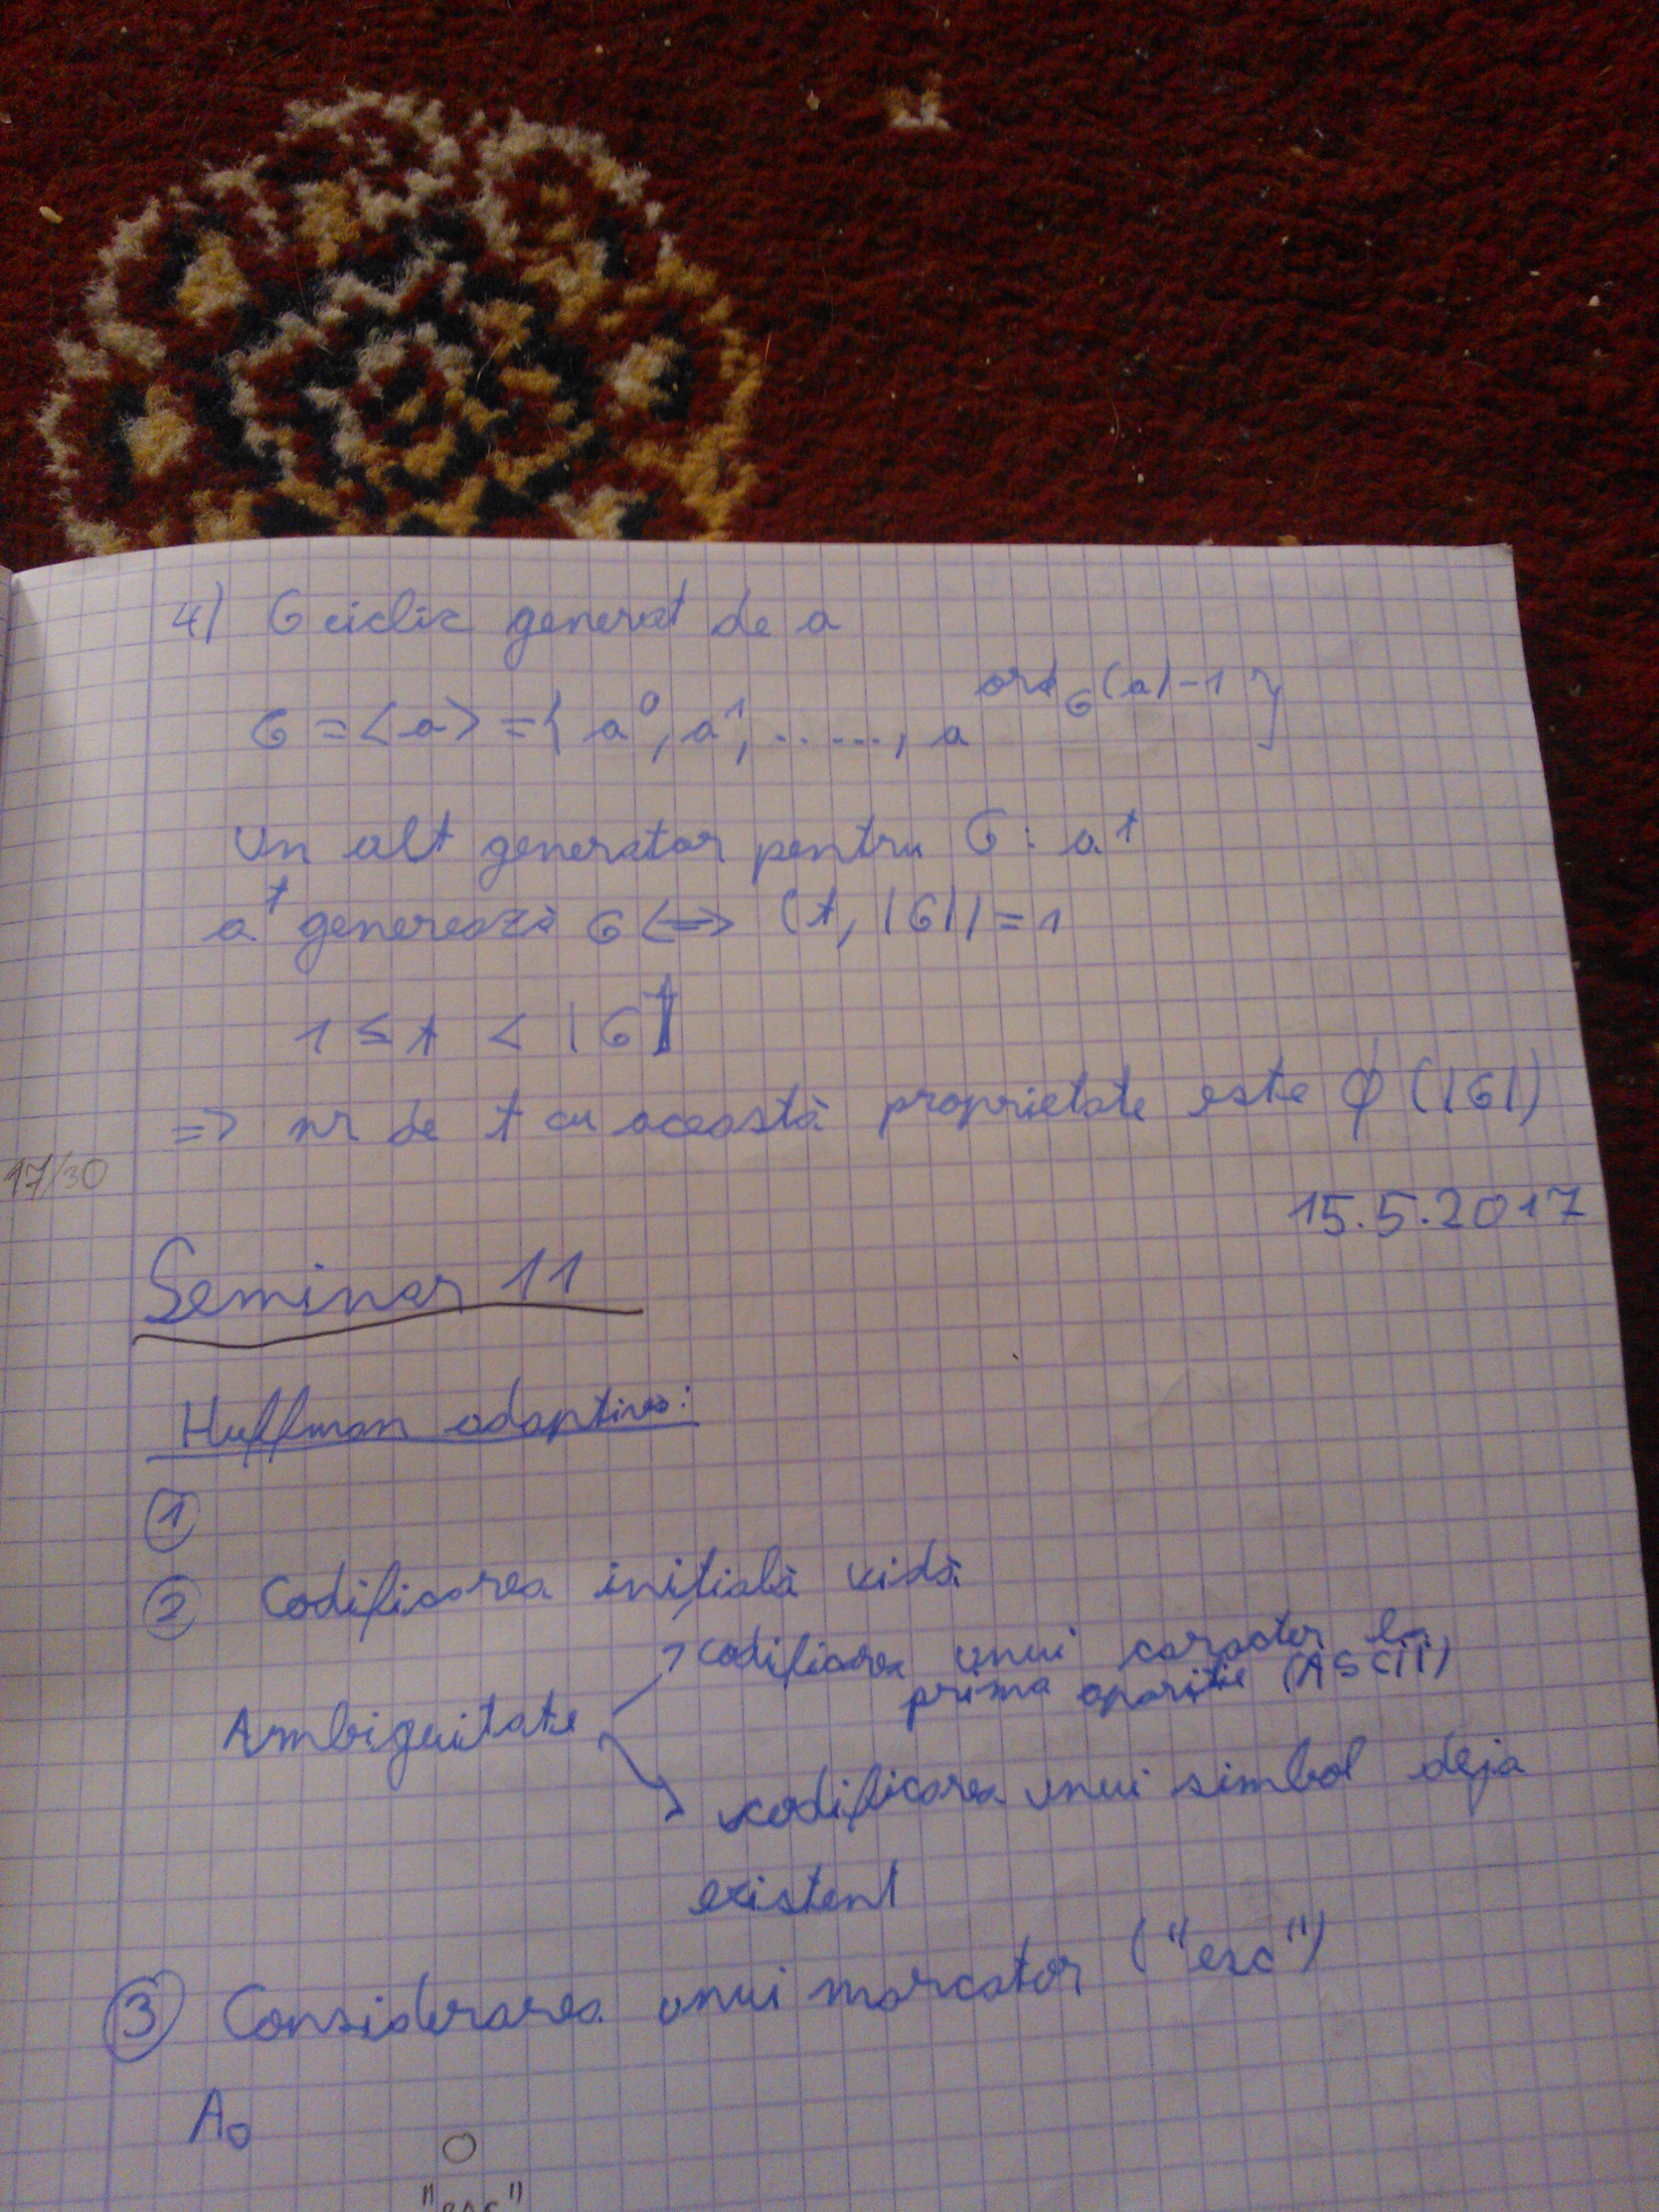 4) G ciclic generat de a
G = <a> = { a⁰, a¹, ......, a^(ord_G(a)-1) }
Un alt generator pentru G: a^t
a^t generează G <=> (t, |G|) = 1
1 ≤ t < |G|
=> nr de t cu această proprietate este ϕ(|G|)
17/30
15.5.2017
Seminar 11
Huffman adaptivă:
①
② Codificarea inițială vidă
Ambiguitate
codificarea unui caracter la
prima apariție (ASCII)
codificarea unui simbol deja
existent
③ Considerarea unui marcator ("esc")
A₀
"esc"